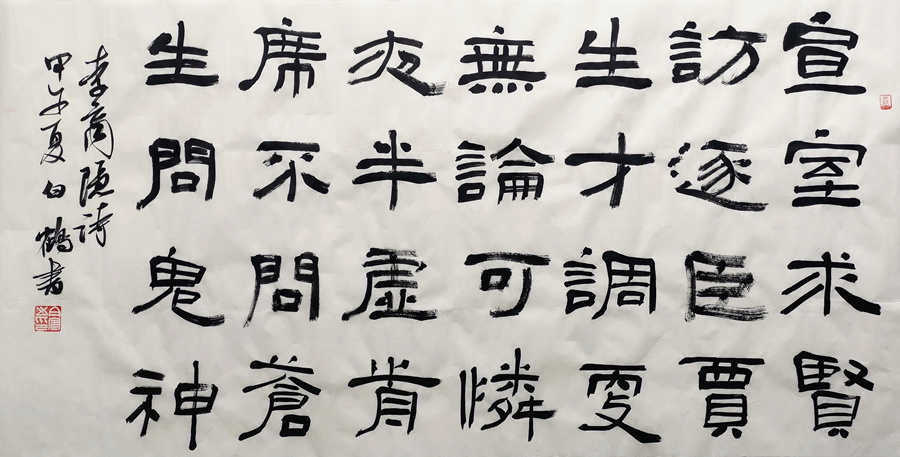 宣室求賢
訪逐臣賈
生才調更
無論可憐
夜半虛前
席不問蒼
生問鬼神
李商隱詩
甲午夏白鶴書